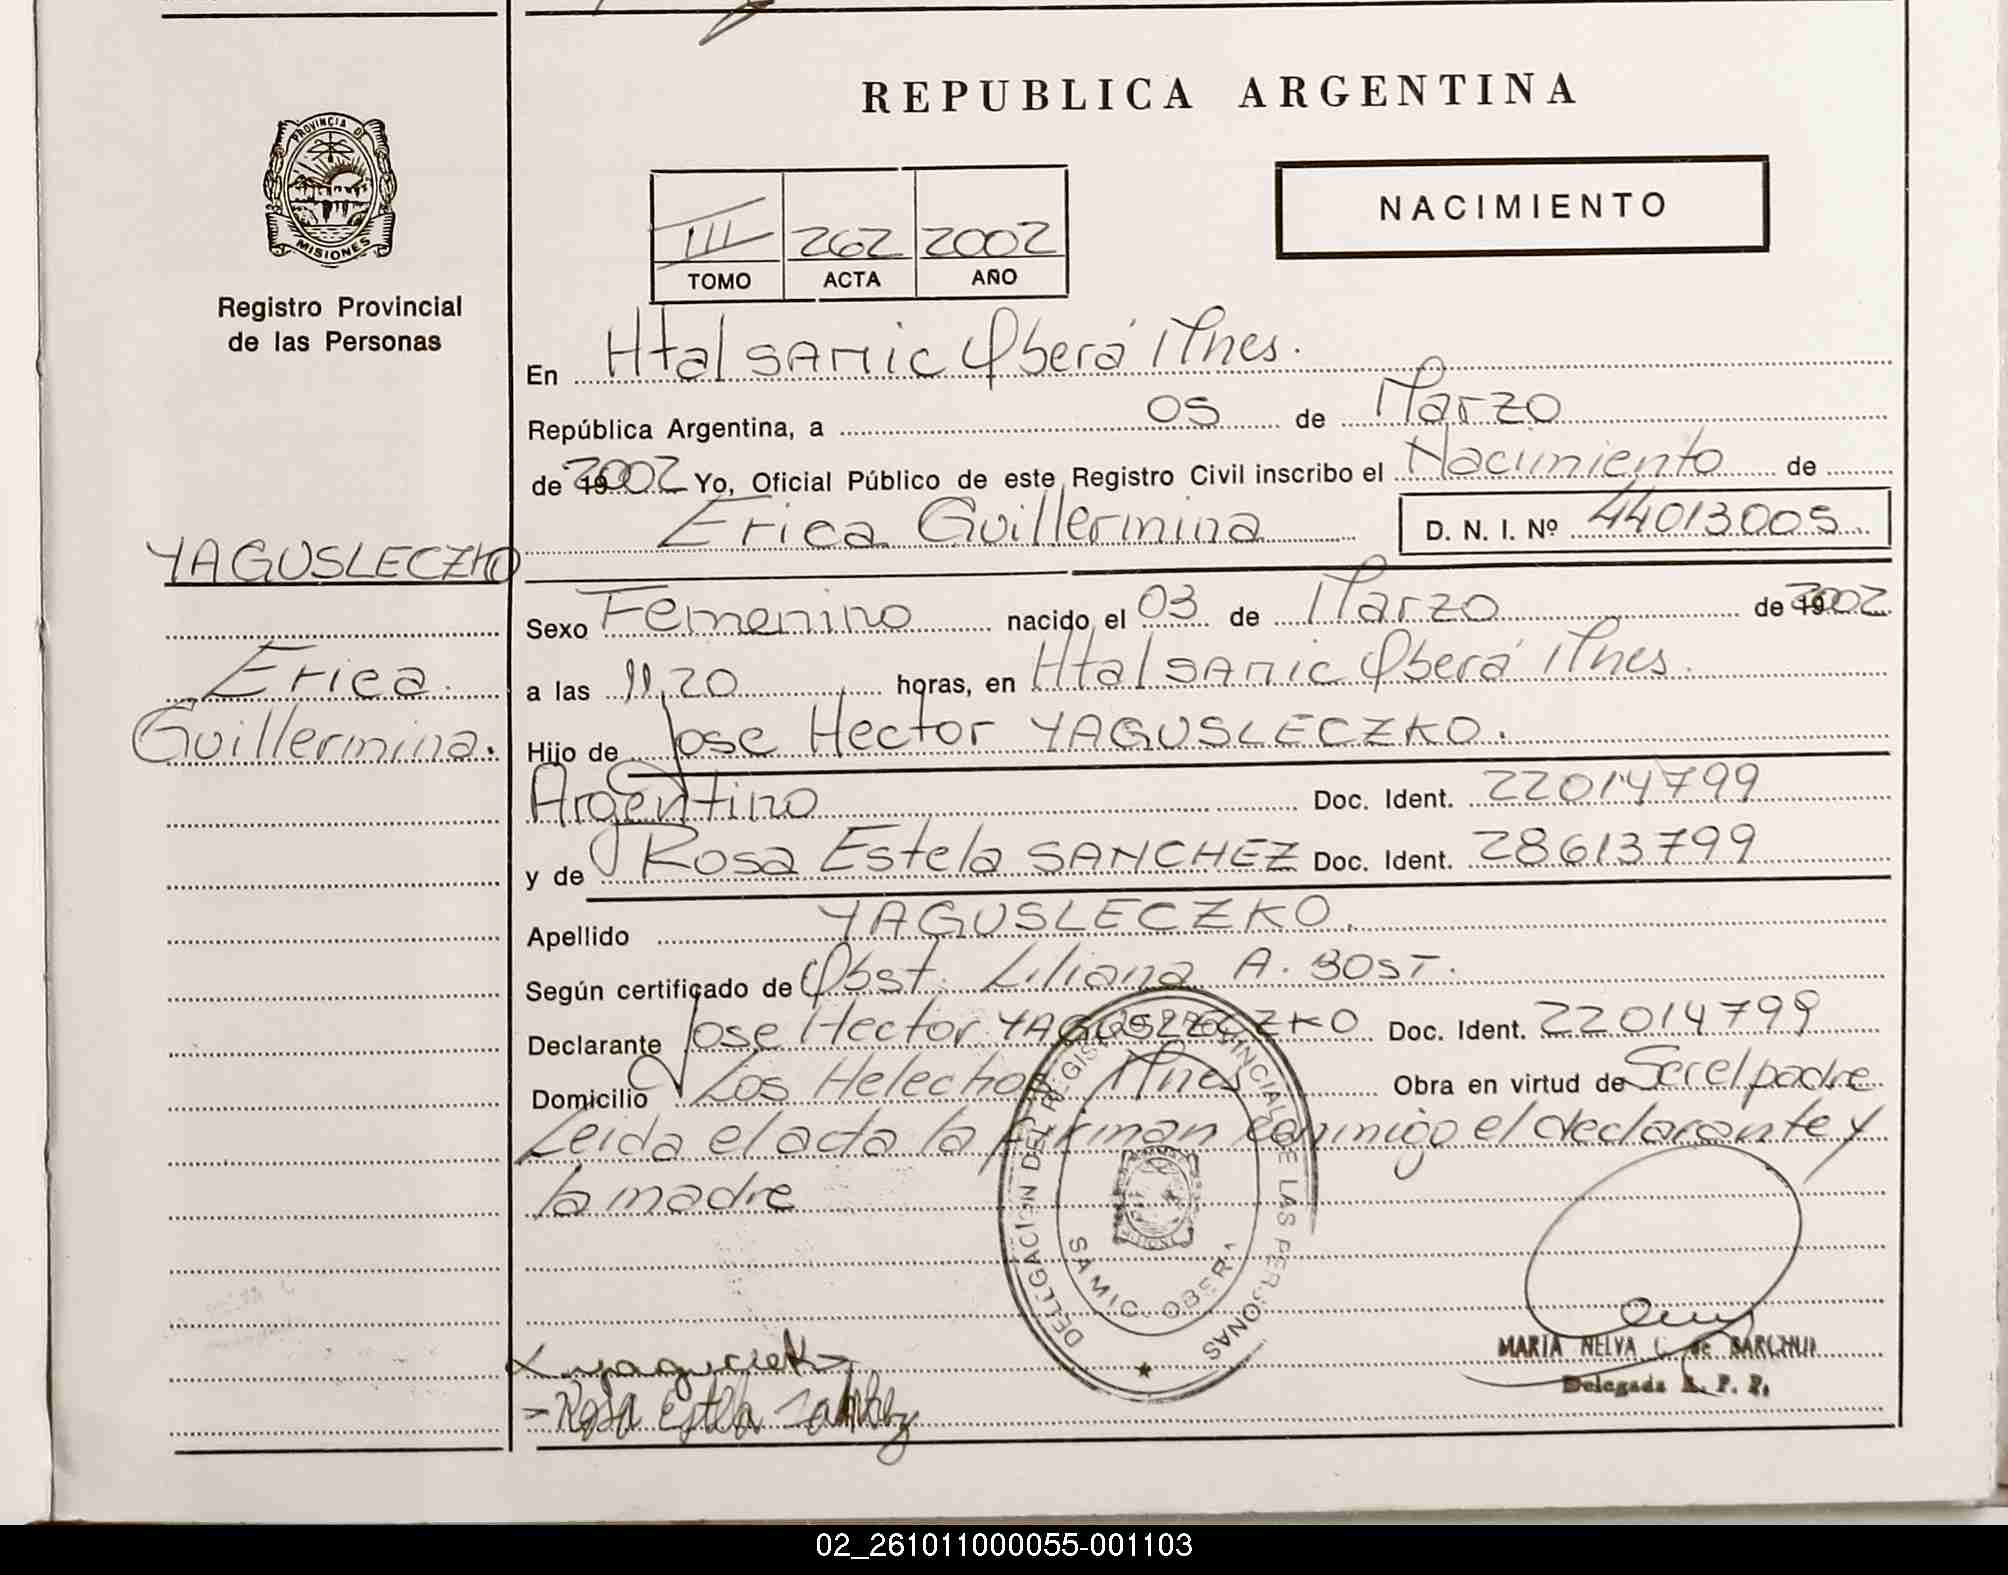 REPUBLICA ARGENTINA
PROVINCIA DE MISIONES
Registro Provincial
de las Personas
III 262 2002
TOMO ACTA AÑO
NACIMIENTO
En Htal SAMIC Oberá Mnes.
República Argentina, a 05 de Marzo
de 2002 Yo, Oficial Público de este Registro Civil inscribo el Nacimiento de
Erica Guillermina D. N. I. Nº 44013005
YAGUSLECZKO
Erica
Guillermina.
Sexo Femenino nacido el 03 de Marzo de 2002
a las 11,20 horas, en Htal SAMIC Oberá Mnes.
Hijo de Jose Hector YAGUSLECZKO.
Argentino Doc. Ident. 22014799
y de Rosa Estela SANCHEZ Doc. Ident. 28613799
Apellido YAGUSLECZKO.
Según certificado de Obst. Liliana A. BOST.
Declarante Jose Hector YAGUSLECZKO Doc. Ident. 22014799
Domicilio Los Helechos Mnes Obra en virtud de Ser el padre
Leida el acta la firman conmigo el declarante y
la madre
DELEGACION DEL REGISTRO PROVINCIAL DE LAS PERSONAS
SAMIC OBERA
MARIA NELVA C. de
Delegada R. P. P.
Rosa Estela Sanchez
02_261011000055-001103